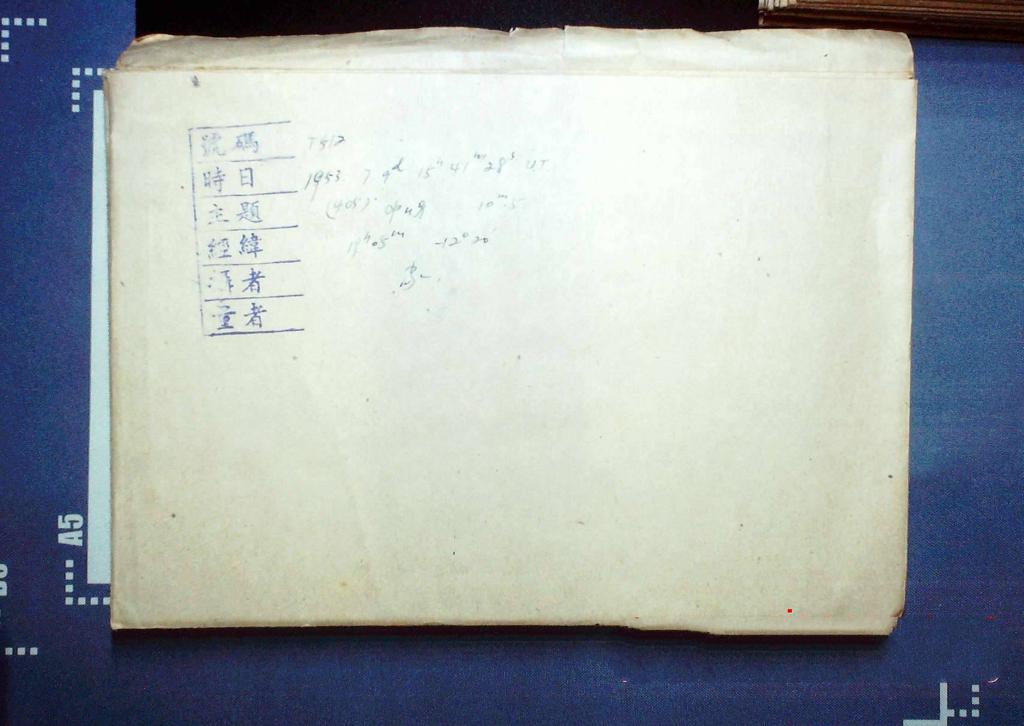 號碼 T512
時日 1953 7 9d 15h 41m 28s UT
主題 (408) Фия 10m.5
經緯 19h05m -12°20'
者
量者
A5